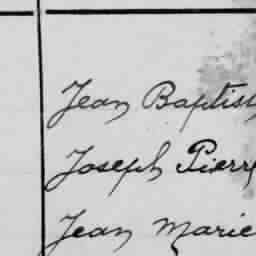 Jean Baptis
Joseph Pierre
Jean Marie